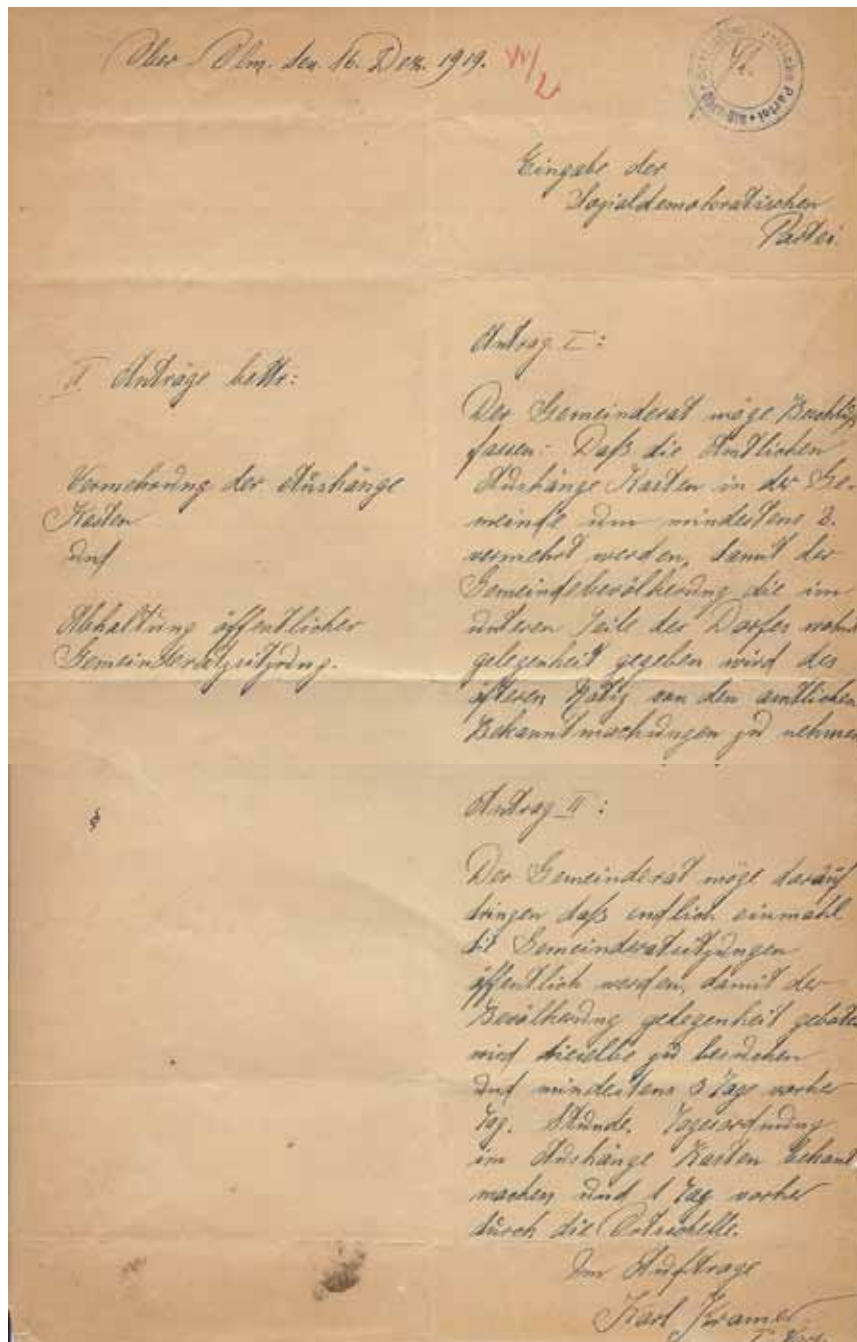 Ober-Olm, den 16. Dez. 1919.
Eingabe der
Sozialdemokratischen
Partei.
II Anträge bettr:
Vermehrung der Aushänge
Kasten
und
Abhaltung öffentlicher
Gemeinderatzsitzung.
Antrag I:
Der Gemeinderat möge Beschluß
fassen. Daß die Amtlichen
Aushänge Kasten in der Ge-
meinde um mindestens 3.
vermehrt werden, damit der
Gemeindebevölkerung die im
unteren Teile der Dorfes wohnd
gelegenheit gegeben wird des
öfteren Notiz von den amtlichen
Bekanntmachungen zu nehmen
Antrag II:
Der Gemeinderat möge darauf
dringen daß endlich einmahl
die Gemeinderatsitzungen
öffentlich werden, damit der
Bevölkerung gelegenheit geboten
wird dieselbe zu besuchen
und mindestens 3 Tage vorher
Tag. Stunde. Tagesordnung
im Aushänge Kasten bekant
machen und 1 Tag vorher
durch die Ortsschelle.
Im Auftrage
Karl Kramer